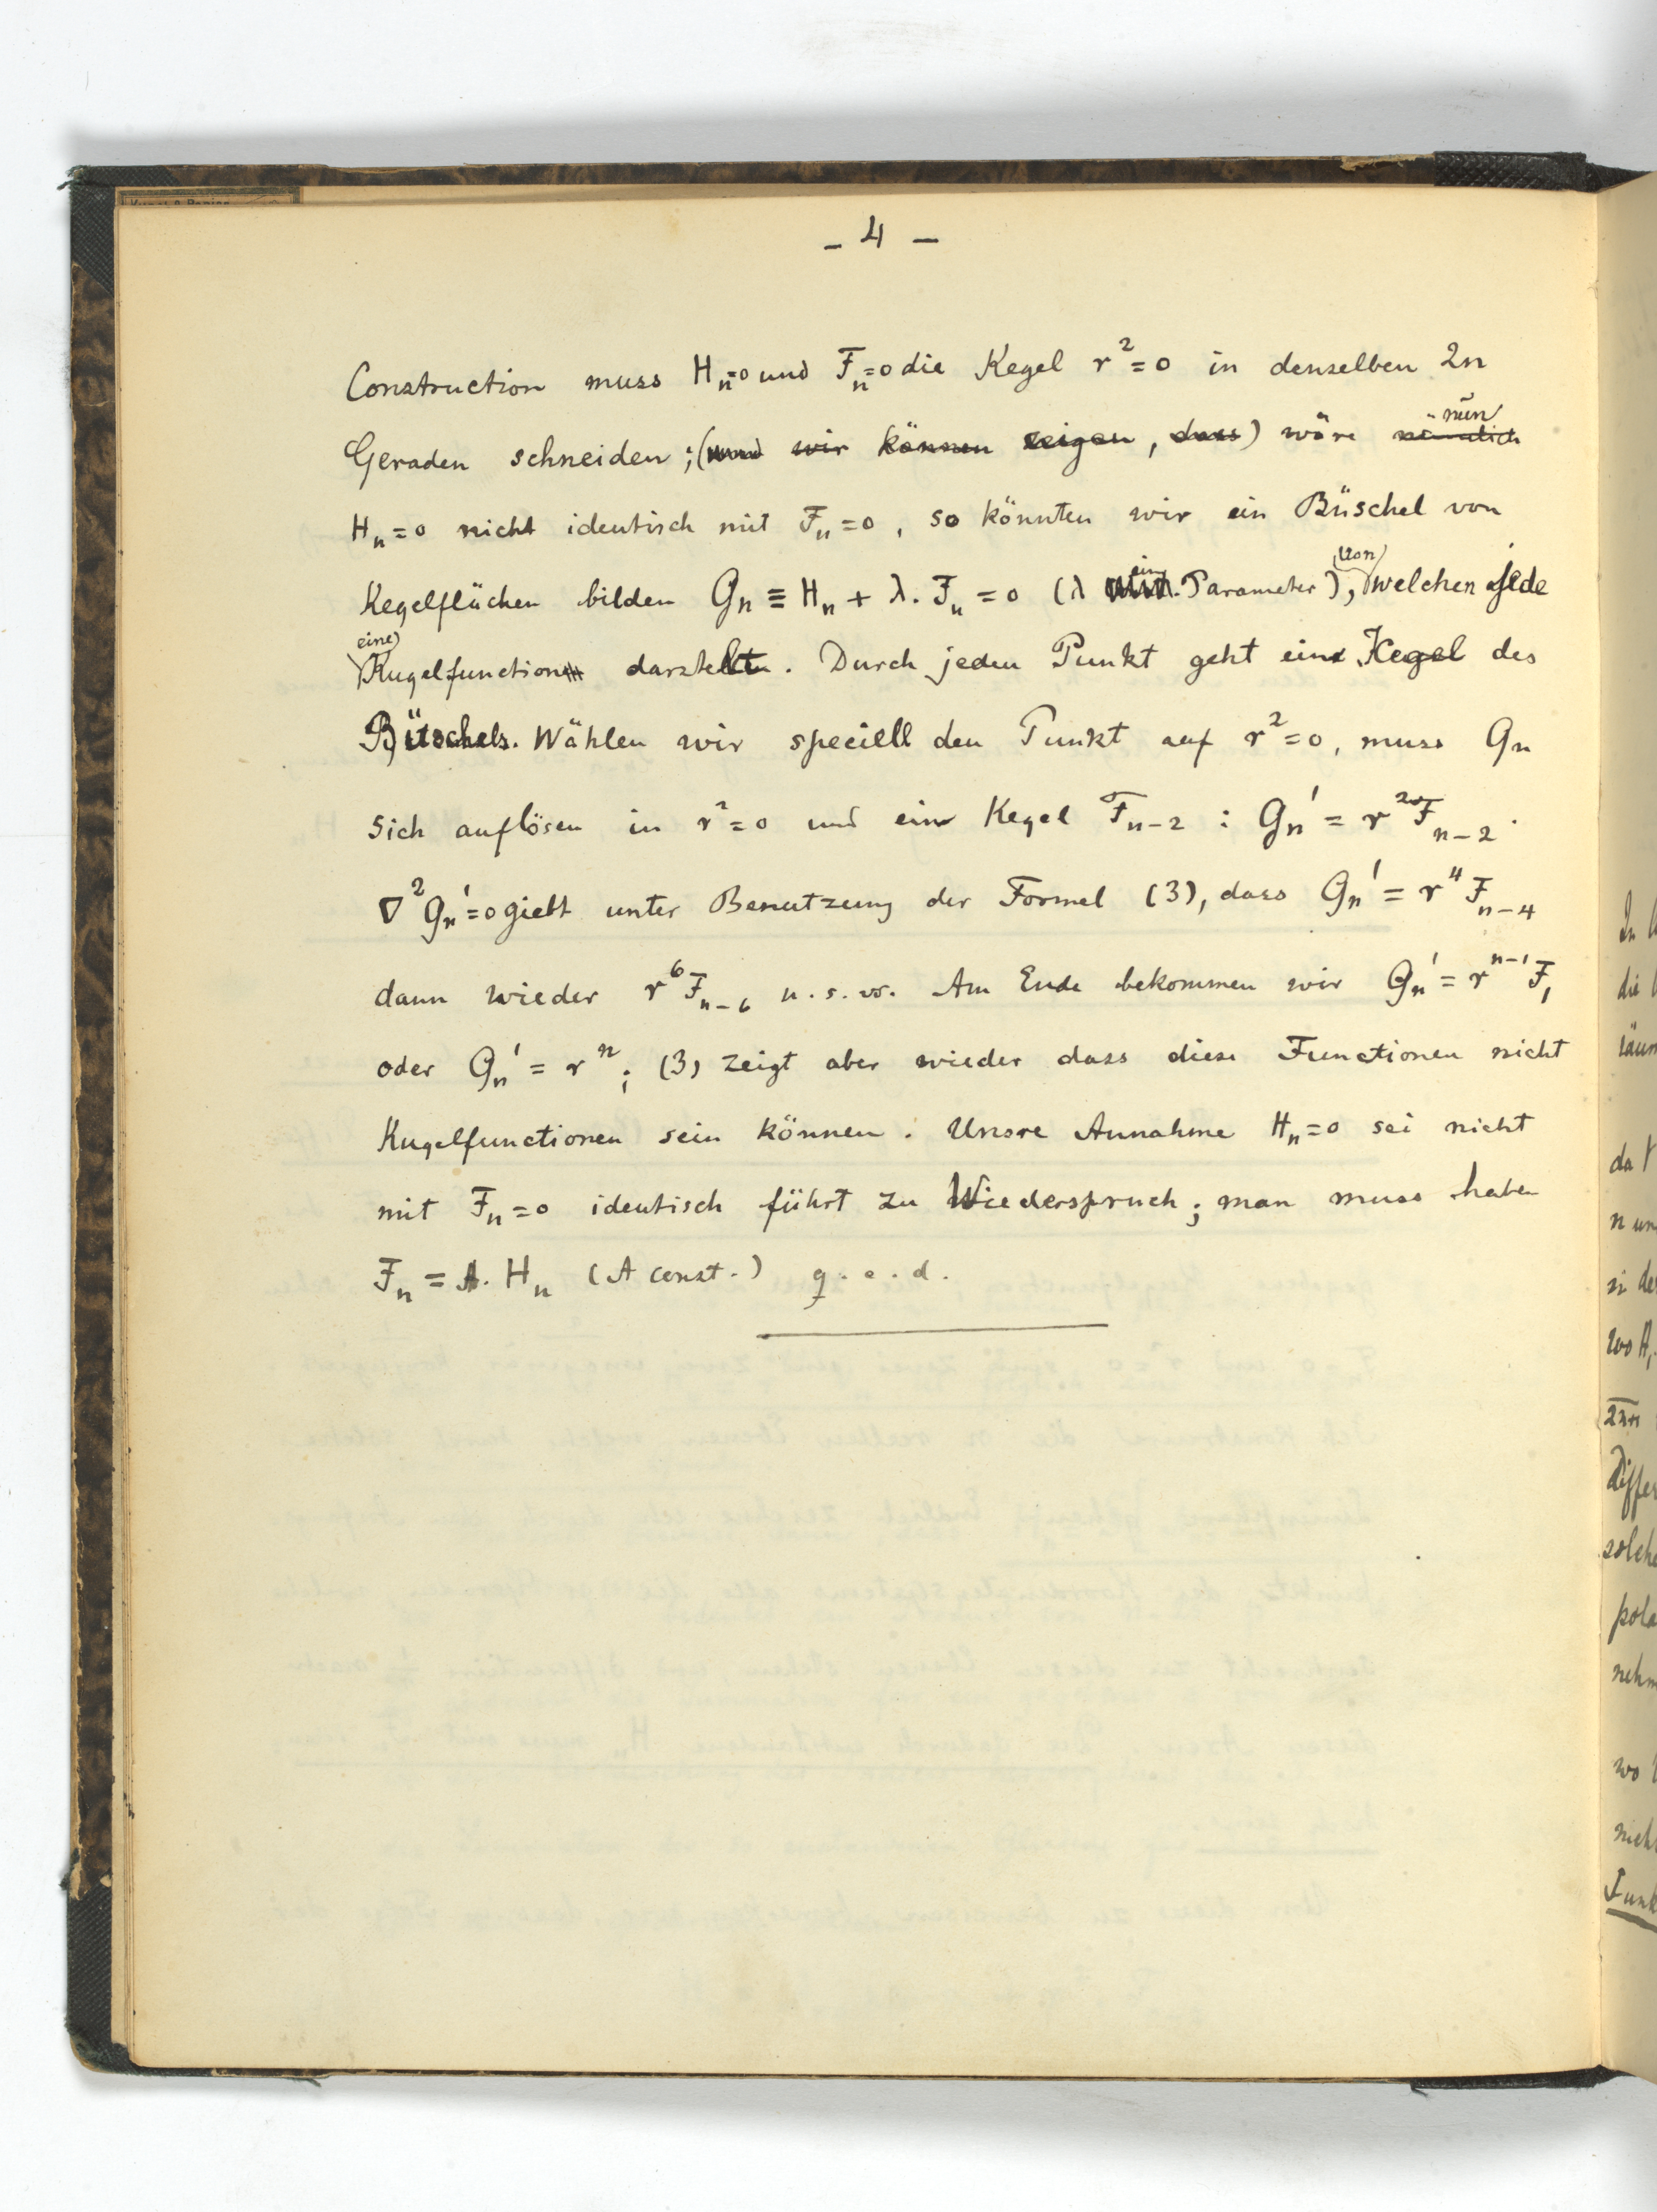 – 4 –
Construction muss Hₙ=0 und Fₙ=0 die Kegel r²=0 in denselben 2n
Geraden schneiden ; (und wir können zeigen , dass) wäre nämlich nun
Hₙ=0 nicht identisch mit Fₙ=0 , so könnten wir ein Büschel von
Kegelflächen bilden Gₙ ≡ Hₙ + λ. Fₙ = 0 (λ ein Parameter ), von welchen jede
eine Kugelfunction darstellt. Durch jeden Punkt geht ein Kegel des
Büschels. Wählen wir speciell den Punkt auf r²=0, muss Gₙ
sich auflösen in r²=0 und ein Kegel Fₙ₋₂ : Gₙ' = r²Fₙ₋₂.
∇²Gₙ'=0 giebt unter Benutzung der Formel (3), dass Gₙ' = r⁴Fₙ₋₄
dann wieder r⁶Fₙ₋₆ u.s.w. Am Ende bekommen wir Gₙ' = rⁿ⁻¹F₁
oder Gₙ' = rⁿ; (3) zeigt aber wieder dass diese Functionen nicht
Kugelfunctionen sein können. Unsre Annahme Hₙ=0 sei nicht
mit Fₙ=0 identisch führt zu Wiederspruch; man muss haben
Fₙ = A. Hₙ (A const.) q.e.d.